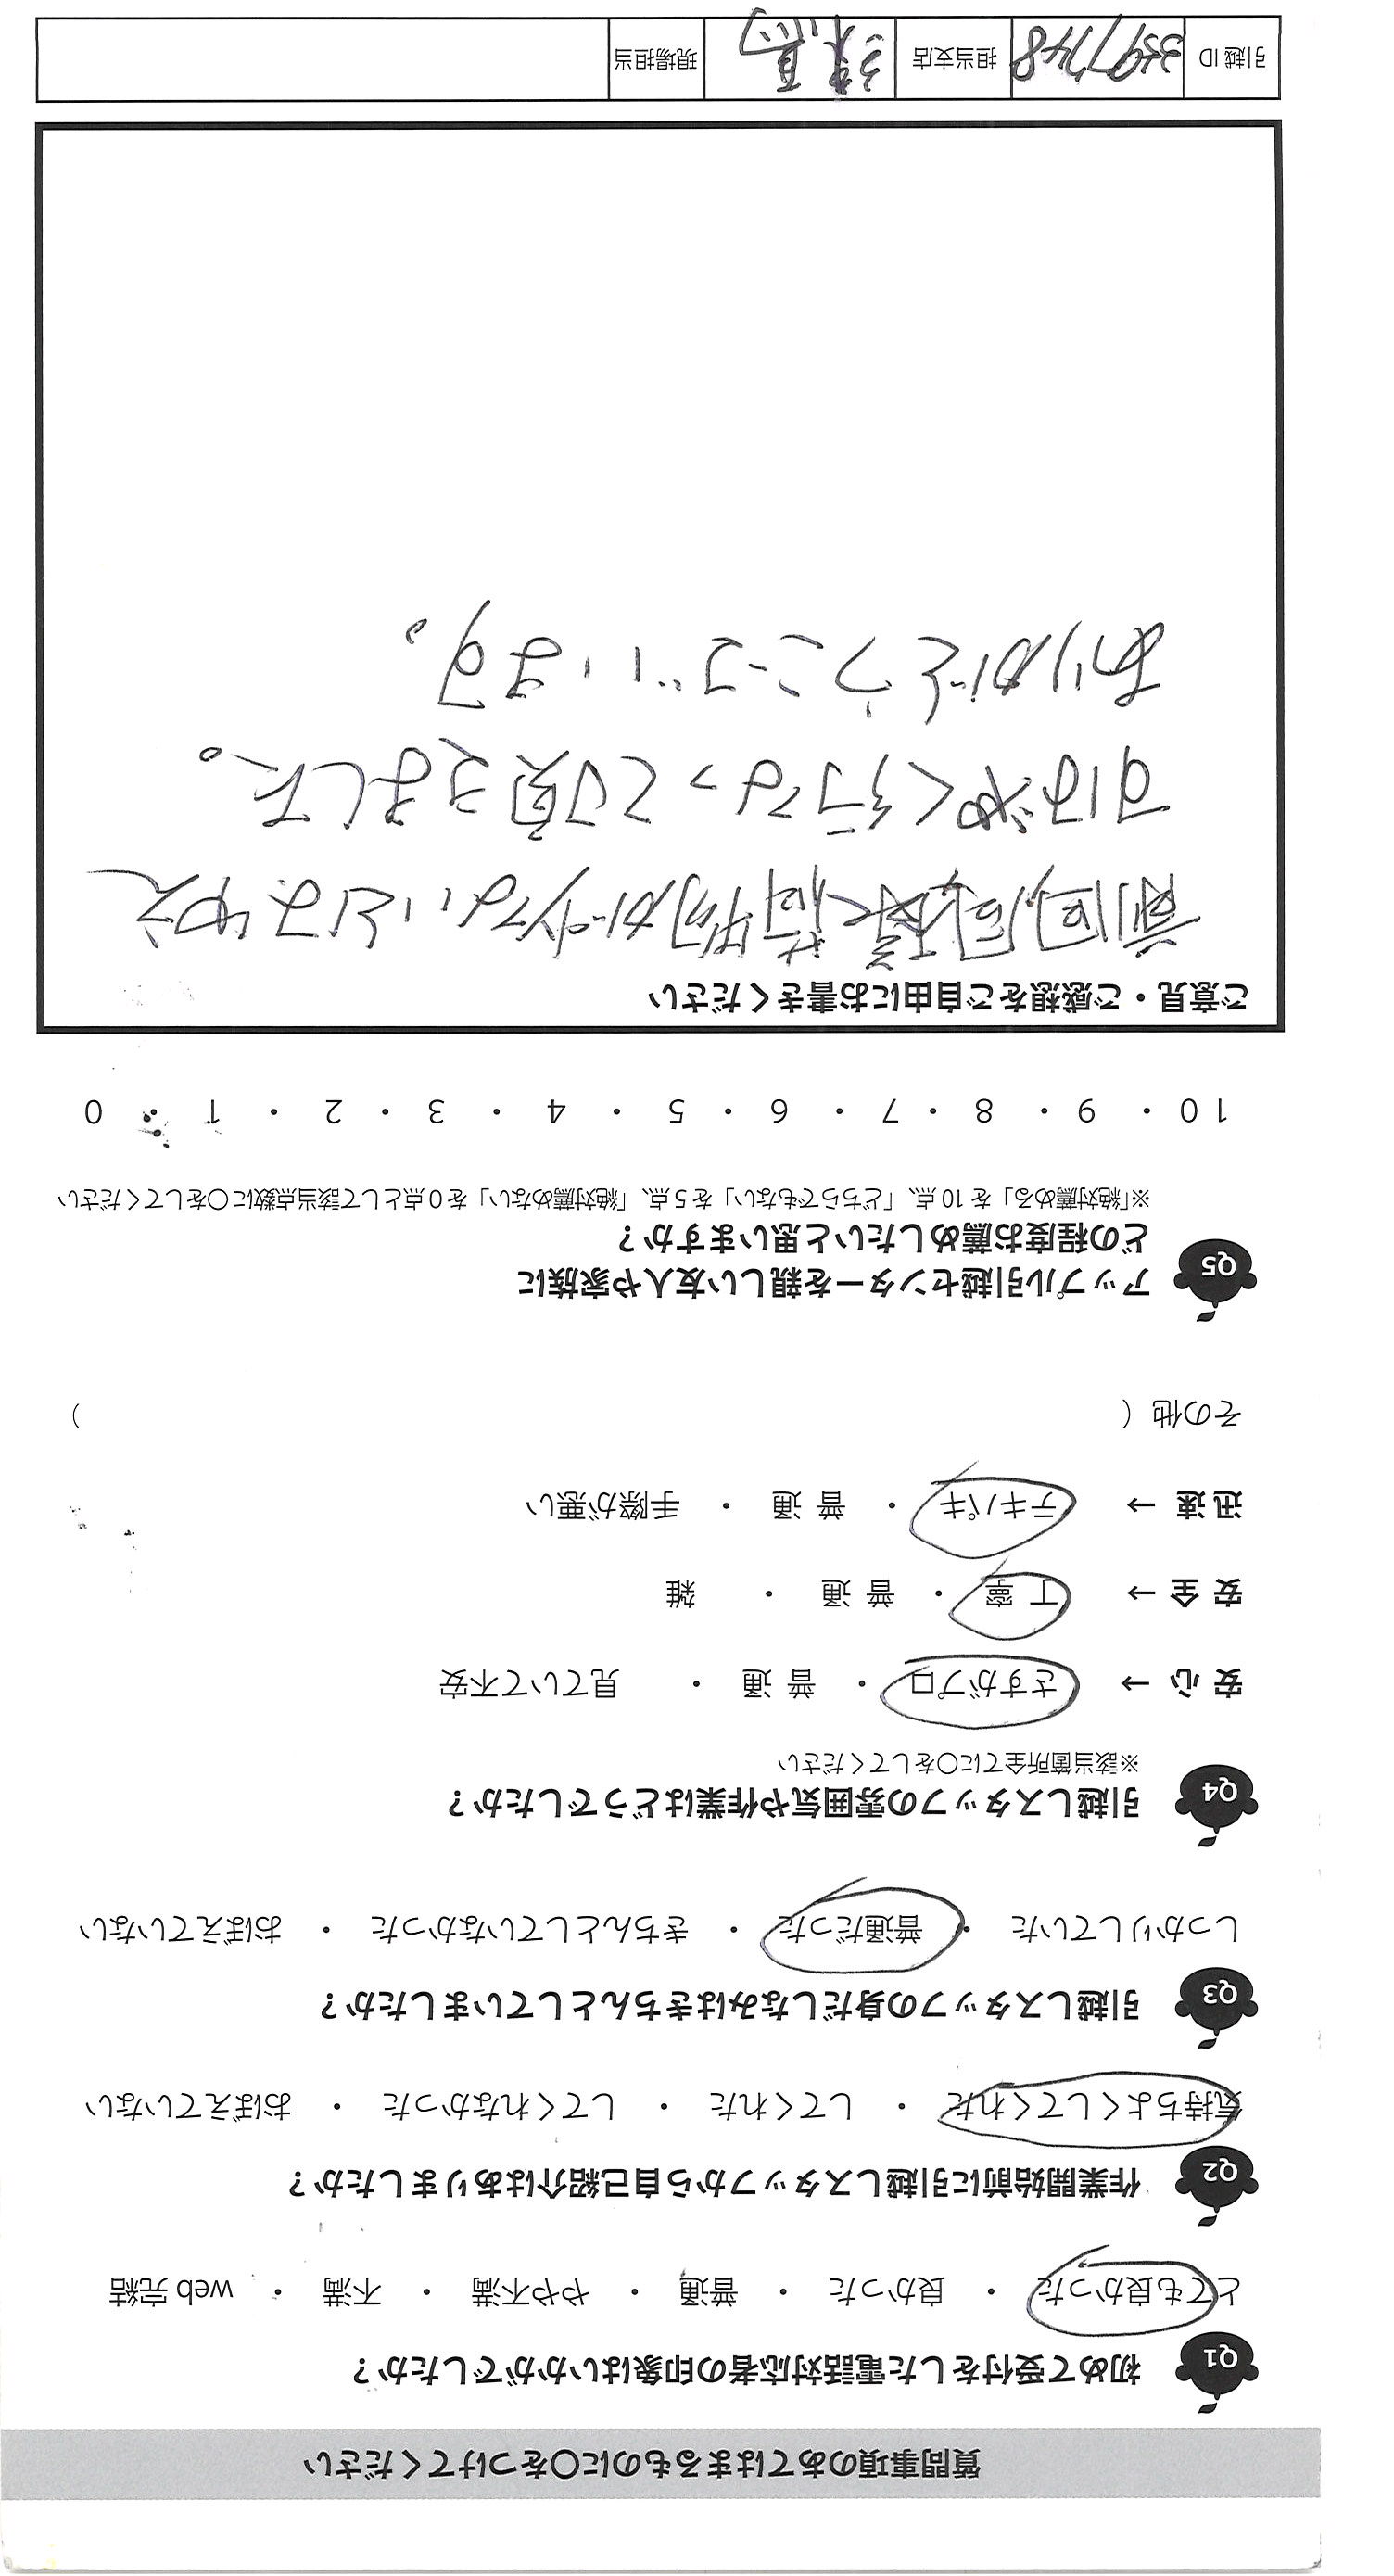 質問事項のあてはまるものに〇をつけてください
Q1 初めて受付をした電話対応者の印象はいかがでしたか？
とても良かった ・ 良かった ・ 普通 ・ やや不満 ・ 不満 ・ web 完結
Q2 作業開始前に引越しスタッフから自己紹介はありましたか？
気持ちよくしてくれた ・ してくれた ・ してくれなかった ・ おぼえていない
Q3 引越しスタッフの身だしなみはきちんとしていましたか？
しっかりしていた ・ 普通だった ・ きちんとしていなかった ・ おぼえていない
Q4 引越しスタッフの雰囲気や作業はどうでしたか？
※該当箇所全てに〇をしてください
安 心 → さすがプロ ・ 普 通 ・ 見ていて不安
安 全 → 丁 寧 ・ 普 通 ・ 雑
迅 速 → テキパキ ・ 普 通 ・ 手際が悪い
その他（ ）
Q5 アップル引越センターを親しい友人や家族に
どの程度お薦めしたいと思いますか？
※「絶対薦める」を 10 点、「どちらでもない」を 5 点、「絶対薦めない」を 0 点として該当点数に〇をしてください
10 ・ 9 ・ 8 ・ 7 ・ 6 ・ 5 ・ 4 ・ 3 ・ 2 ・ 1 ・ 0
ご意見・ご感想をご自由にお書きください
前回同様荷物が少ないとはゆえ
すばやく行なって頂きました。
ありがとうございます。
引越 ID 3597748 担当支店 練馬 現場担当